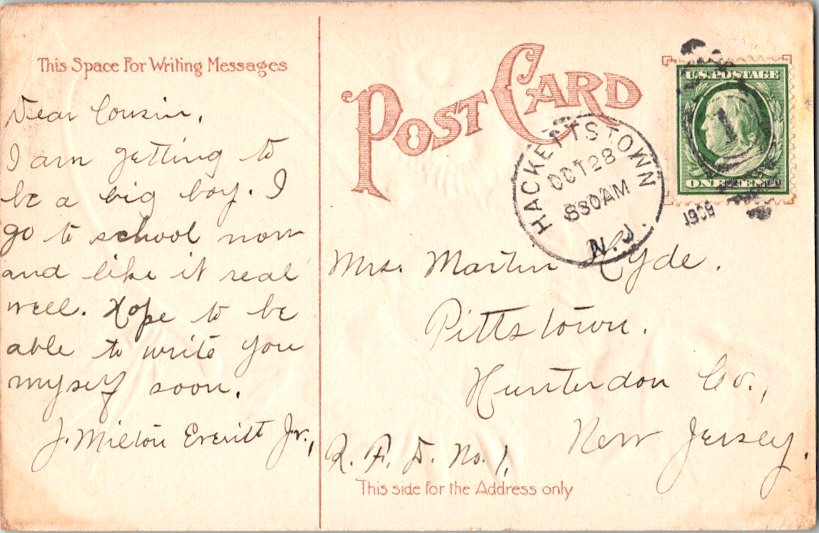 This Space For Writing Messages
POST CARD
Dear Cousin,
I am getting to
be a big boy. I
go to school now
and like it real
well. Hope to be
able to write you
myself soon.
J. Milton Everitt Jr.,
U.S. POSTAGE
ONE CENT
HACKETTSTOWN
OCT 28
830AM
N.J.
1
Mrs. Martin Hyde.
Pittstown.
Hunterdon Co.,
New Jersey.
R. F. D. No. 1,
This side for the Address only